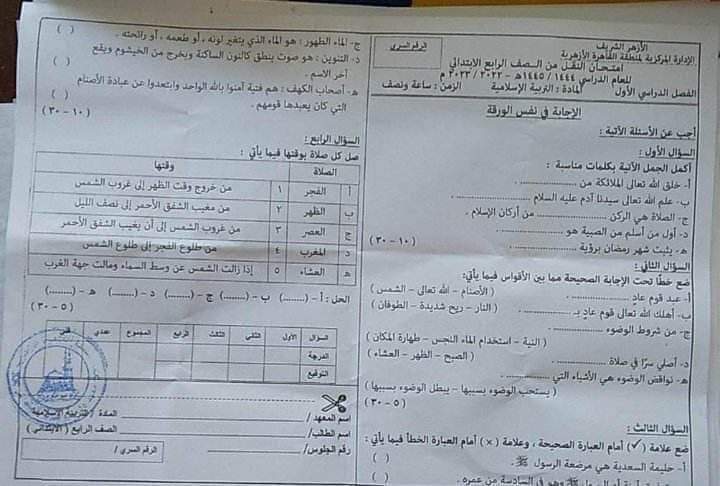 الأزهر الشريف
الإدارة المركزية لمنطقة القاهرة الأزهرية
امتحان النقل من الصف الرابع الابتدائي
للعام الدراسي ١٤٤٤ / ١٤٤٥هـ - ٢٠٢٢ / ٢٠٢٣ م
الرقم السري
الفصل الدراسي الأول المادة : التربية الإسلامية الزمن : ساعة ونصف
الإجابة في نفس الورقة
أجب عن الأسئلة الآتية :
السؤال الأول :
أكمل الجمل الآتية بكلمات مناسبة :
أ- خلق الله تعالى الملائكة من .............
ب- علم الله تعالى سيدنا آدم عليه السلام .............
ج- الصلاة هي الركن ............. من أركان الإسلام .
د- أول من أسلم من الصبية هو .............
هـ- يثبت شهر رمضان برؤية .............
(١٠ - ٣٠)
السؤال الثاني :
ضع خطًا تحت الإجابة الصحيحة مما بين الأقواس فيما يأتي:
أ- عبد قوم عاد ............. ( الأصنام - الله تعالى - الشمس )
ب- أهلك الله تعالى قوم عادٍ بـ ............. ( النار - ريح شديدة - الطوفان )
ج- من شروط الوضوء .............
( النية - استخدام الماء النجس - طهارة المكان )
د- أصلي سرًا في صلاة ............. ( الصبح - الظهر - العشاء )
هـ- نواقض الوضوء هي الأشياء التي .............
( يستحب الوضوء بسببها - يبطل الوضوء بسببها )
(٥ - ٣٠)
السؤال الثالث :
ضع علامة (✓) أمام العبارة الصحيحة ، وعلامة (×) أمام العبارة الخطأ فيما يأتي :
أ- حليمة السعدية هي مرضعة الرسول ﷺ . ( )
ﷺ وهو في السادسة من عمره . ( )
ج- الماء الطهور : هو الماء الذي يتغير لونه ، أو طعمه ، أو رائحته . ( )
د- التنوين : هو صوت ينطق كالنون الساكنة ويخرج من الخيشوم ويقع
آخر الاسم . ( )
هـ- أصحاب الكهف : هم فتية آمنوا بالله الواحد وابتعدوا عن عبادة الأصنام
التي كان يعبدها قومهم . ( )
(١٠ - ٣٠)
السؤال الرابع :
صل كل صلاة بوقتها فيما يأتي :
الصلاة وقتها
أ الفجر ١ من خروج وقت الظهر إلى غروب الشمس
ب الظهر ٢ من مغيب الشفق الأحمر إلى نصف الليل
ج العصر ٣ من غروب الشمس إلى أن يغيب الشفق الأحمر
د المغرب ٤ من طلوع الفجر إلى طلوع الشمس
هـ العشاء ٥ إذا زالت الشمس عن وسط السماء ومالت جهة الغرب
الحل : أ - (........) ب - (........) ج - (........) د - (........) هـ - (........)
(٥ - ٣٠)
السؤال الأول الثاني الثالث الرابع المجموع عددي فني
الدرجة
التوقيع
اسم المعهد / المادة / التربية الإسلامية
اسم الطالب/ الصف الرابع ( الابتدائي )
رقم الجلوس/ الرقم السري /